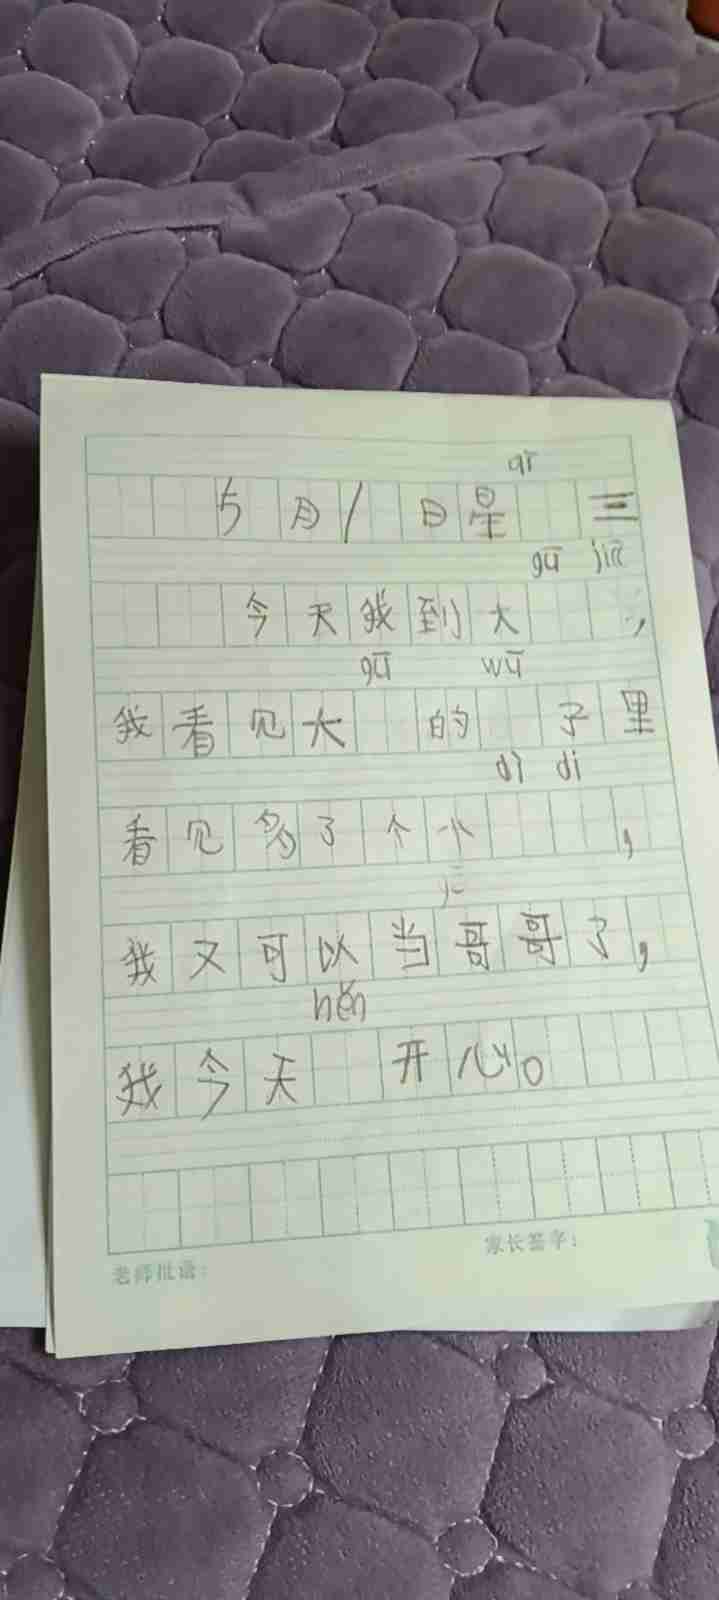 5月1日星qī三
今天我到大gū jiā，
我看见大gū的wū子里
看见多了个小dì di，
我又可以当哥哥了，
我今天hěn开心。
家长签字：
老师批语：